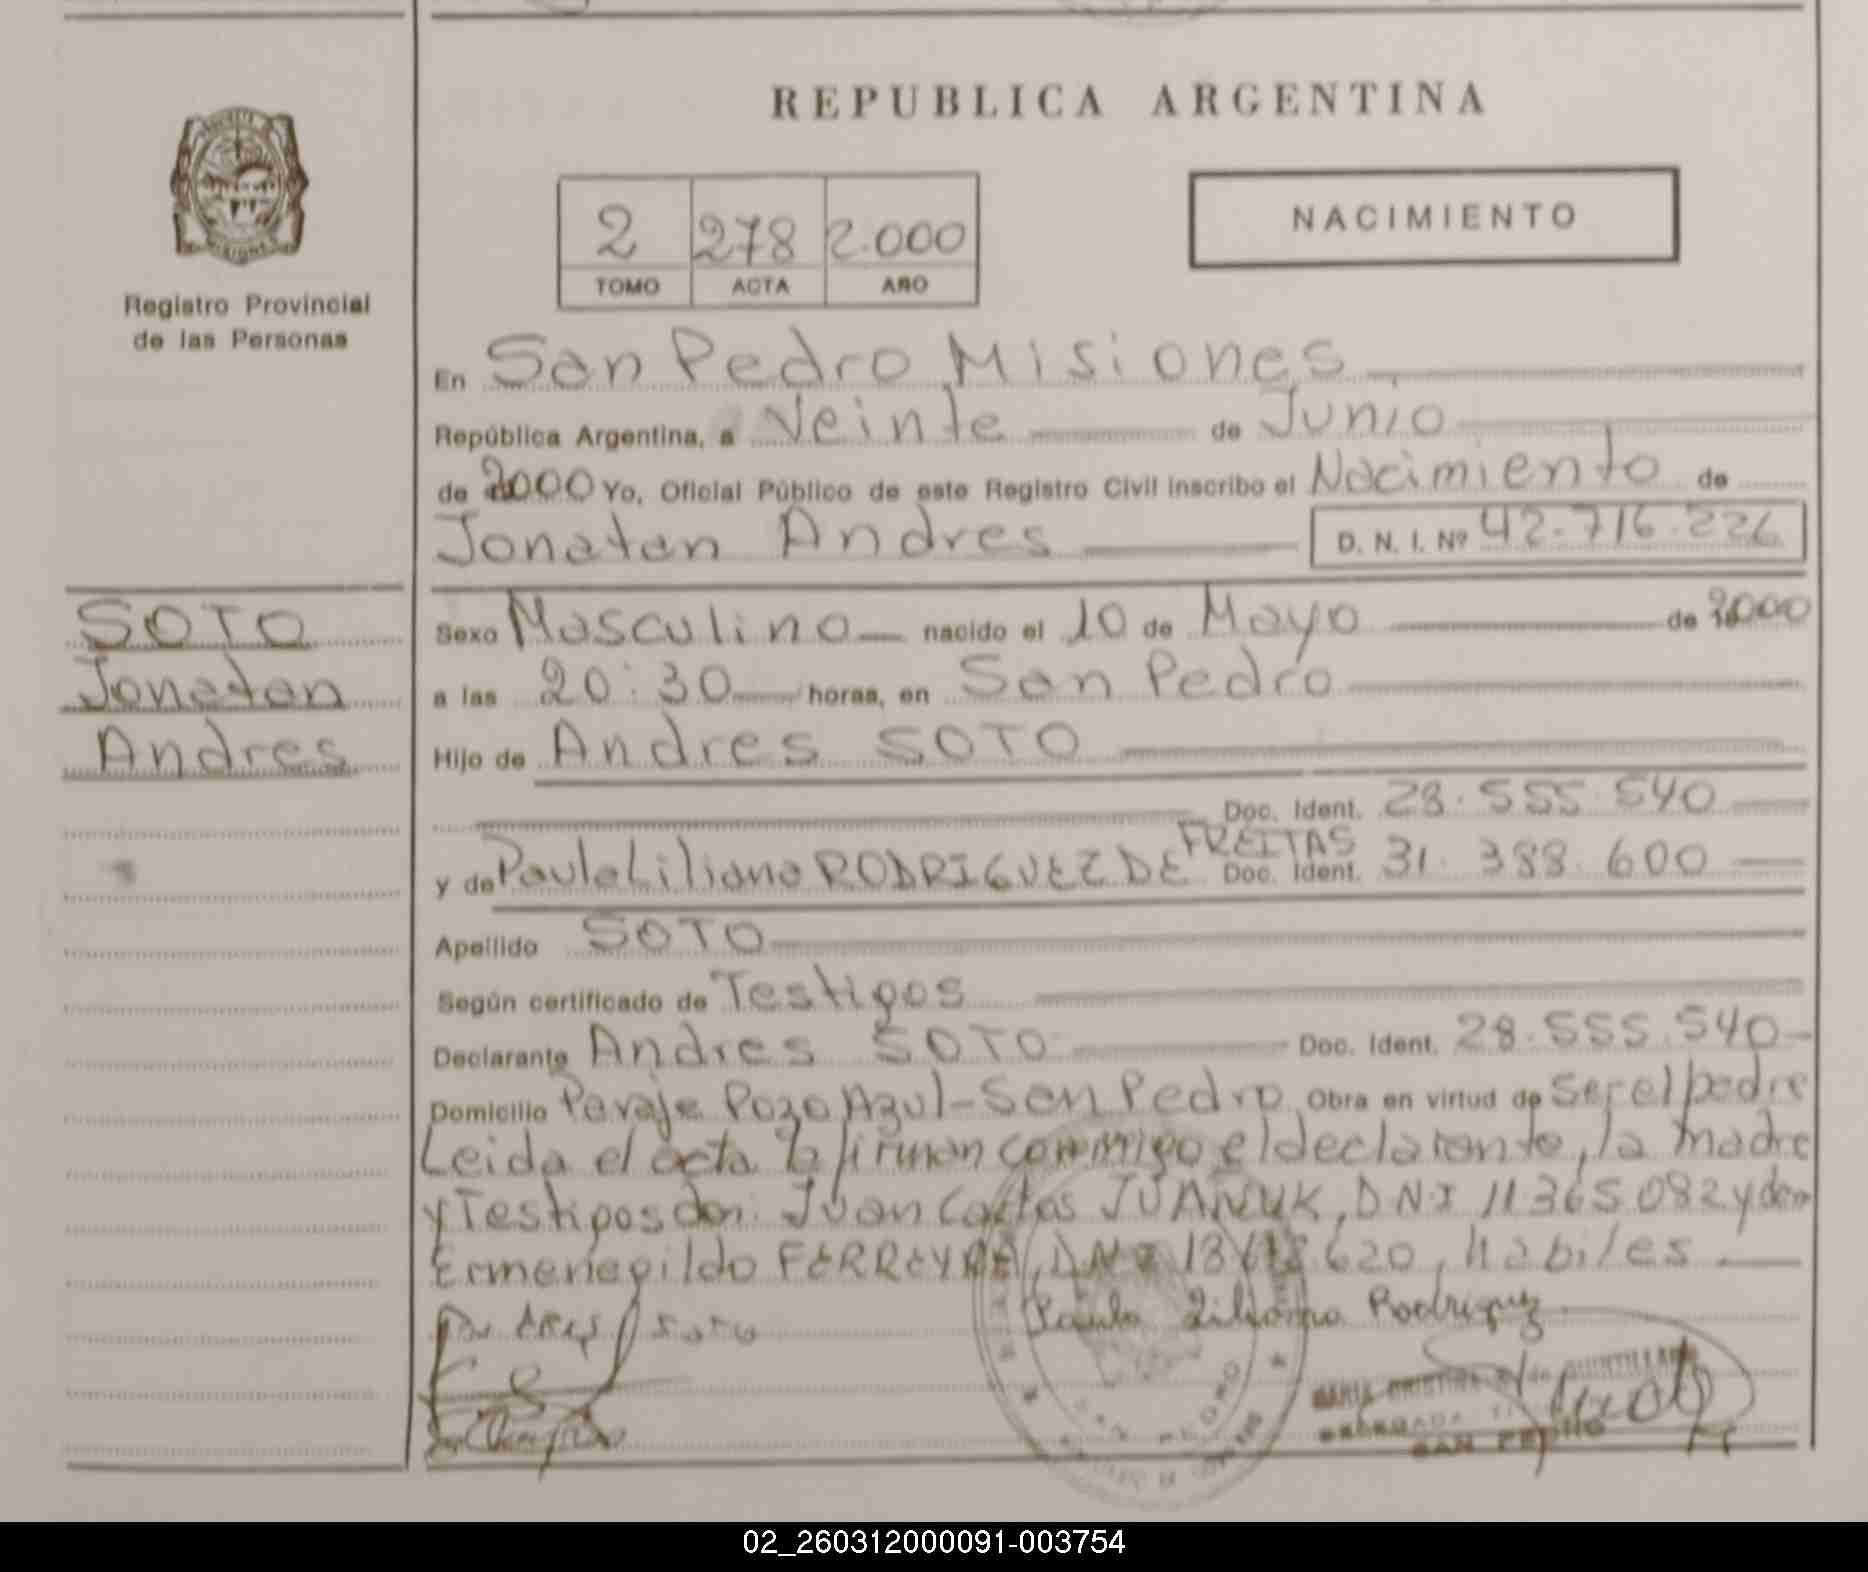 REPUBLICA ARGENTINA
2 278 2.000
TOMO ACTA AÑO
NACIMIENTO
Registro Provincial
de las Personas
En San Pedro Misiones
República Argentina, a Veinte de Junio
de 2000 Yo, Oficial Público de este Registro Civil inscribo el Nacimiento de
Jonatan Andres D. N. I. Nº 42-716.226
SOTO
Jonatan
Andres
Sexo Masculino nacido el 10 de Mayo de 2000
a las 20:30 horas, en San Pedro
Hijo de Andres SOTO
Doc. Ident. 28.555.540
y de Paula Liliana RODRIGUEZ DE FREITAS Doc. Ident. 31.388.600
Apellido SOTO
Según certificado de Testigos
Declarante Andres SOTO Doc. Ident. 28.555.540-
Domicilio Paraje Pozo Azul-San Pedro Obra en virtud de ser el padre
Leida el acta la firman conmigo el declarante, la madre
y Testigos don: Juan Carlos JUAÑUK, D.N.I 11.365.082 y don
Ermenegildo FERREYRA, DNI 620, habiles
Andres Soto Paula Liliana Rodriguez
MARIA CRISTINA de QUINTILLAN
DELEGADA
SAN PEDRO
SAN PEDRO
02_260312000091-003754